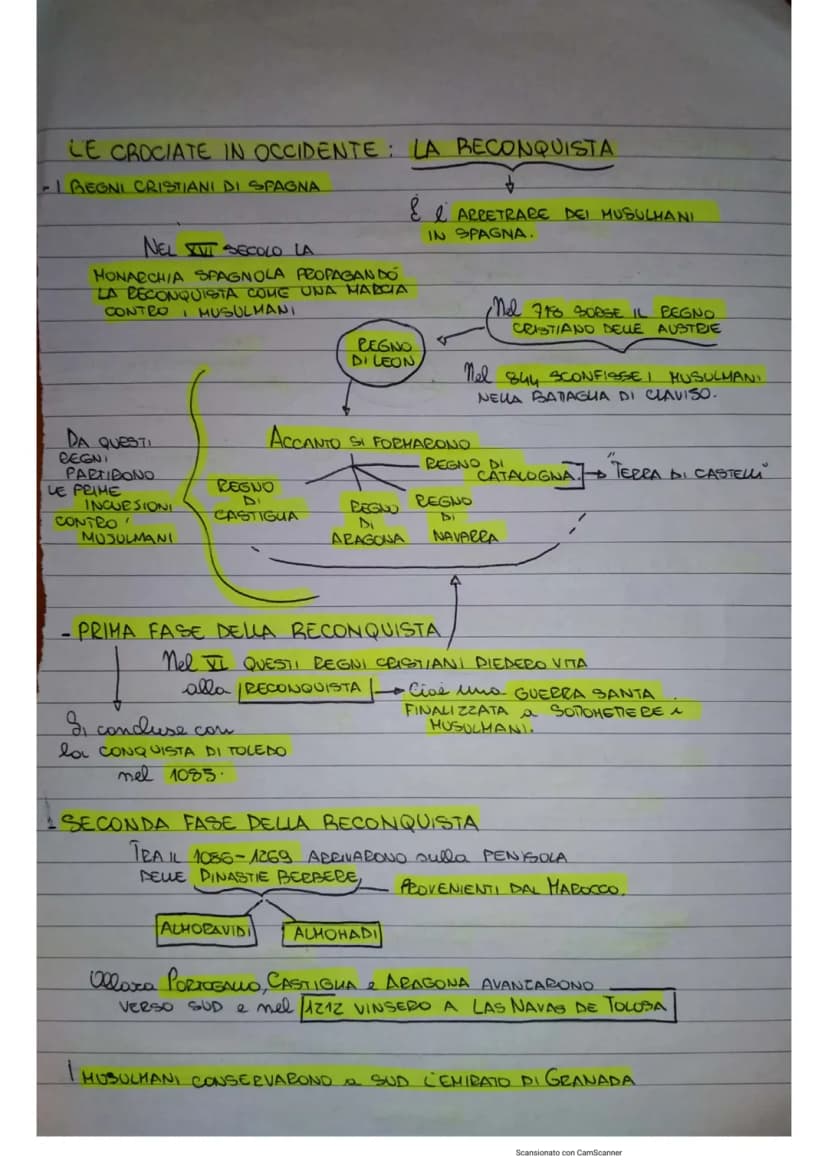 LE CROCIATE IN OCCIDENTE: LA RECONQUISTA
- I REGNI CRISTIANI DI SPAGNA
È l' ARRETRARE DEI MUSULMANI
IN SPAGNA.
NEL XVI SECOLO LA
MONARCHIA SPAGNOLA PROPAGANDÒ
LA RECONQUISTA COME UNA MARCIA
CONTRO I MUSULMANI
Nel 718 SORSE IL REGNO
CRISTIANO DELLE AUSTRIE
REGNO
DI LEON
Nel 844 SCONFISSE I MUSULMANI
NELLA BATTAGLIA DI CLAVISO.
ACCANTO SI FORMARONO
DA QUESTI
REGNI
PARTIRONO
LE PRIME
INCURSIONI
CONTRO I
MUSULMANI
REGNO
DI
CASTIGLIA
REGNO
DI
ARAGONA
REGNO
DI
NAVARRA
REGNO DI
CATALOGNA. → "TERRA DI CASTELLI"
- PRIMA FASE DELLA RECONQUISTA
Nel XI QUESTI REGNI CRISTIANI DIEDERO VITA
alla RECONQUISTA → Cioè una GUERRA SANTA
FINALIZZATA a SOTTOMETTERE i
MUSULMANI.
Si concluse con
la CONQUISTA DI TOLEDO
nel 1085.
- SECONDA FASE DELLA RECONQUISTA
TRA IL 1086-1269 ARRIVARONO sulla PENISOLA
DELLE DINASTIE BERBERE,
PROVENIENTI DAL MAROCCO.
ALMORAVIDI
ALMOHADI
Allora PORTOGALLO, CASTIGLIA e ARAGONA AVANZARONO
VERSO SUD e nel 1212 VINSERO A LAS NAVAS DE TOLOSA
I MUSULMANI CONSERVARONO a SUD L'EMIRATO DI GRANADA
Scansionato con CamScanner